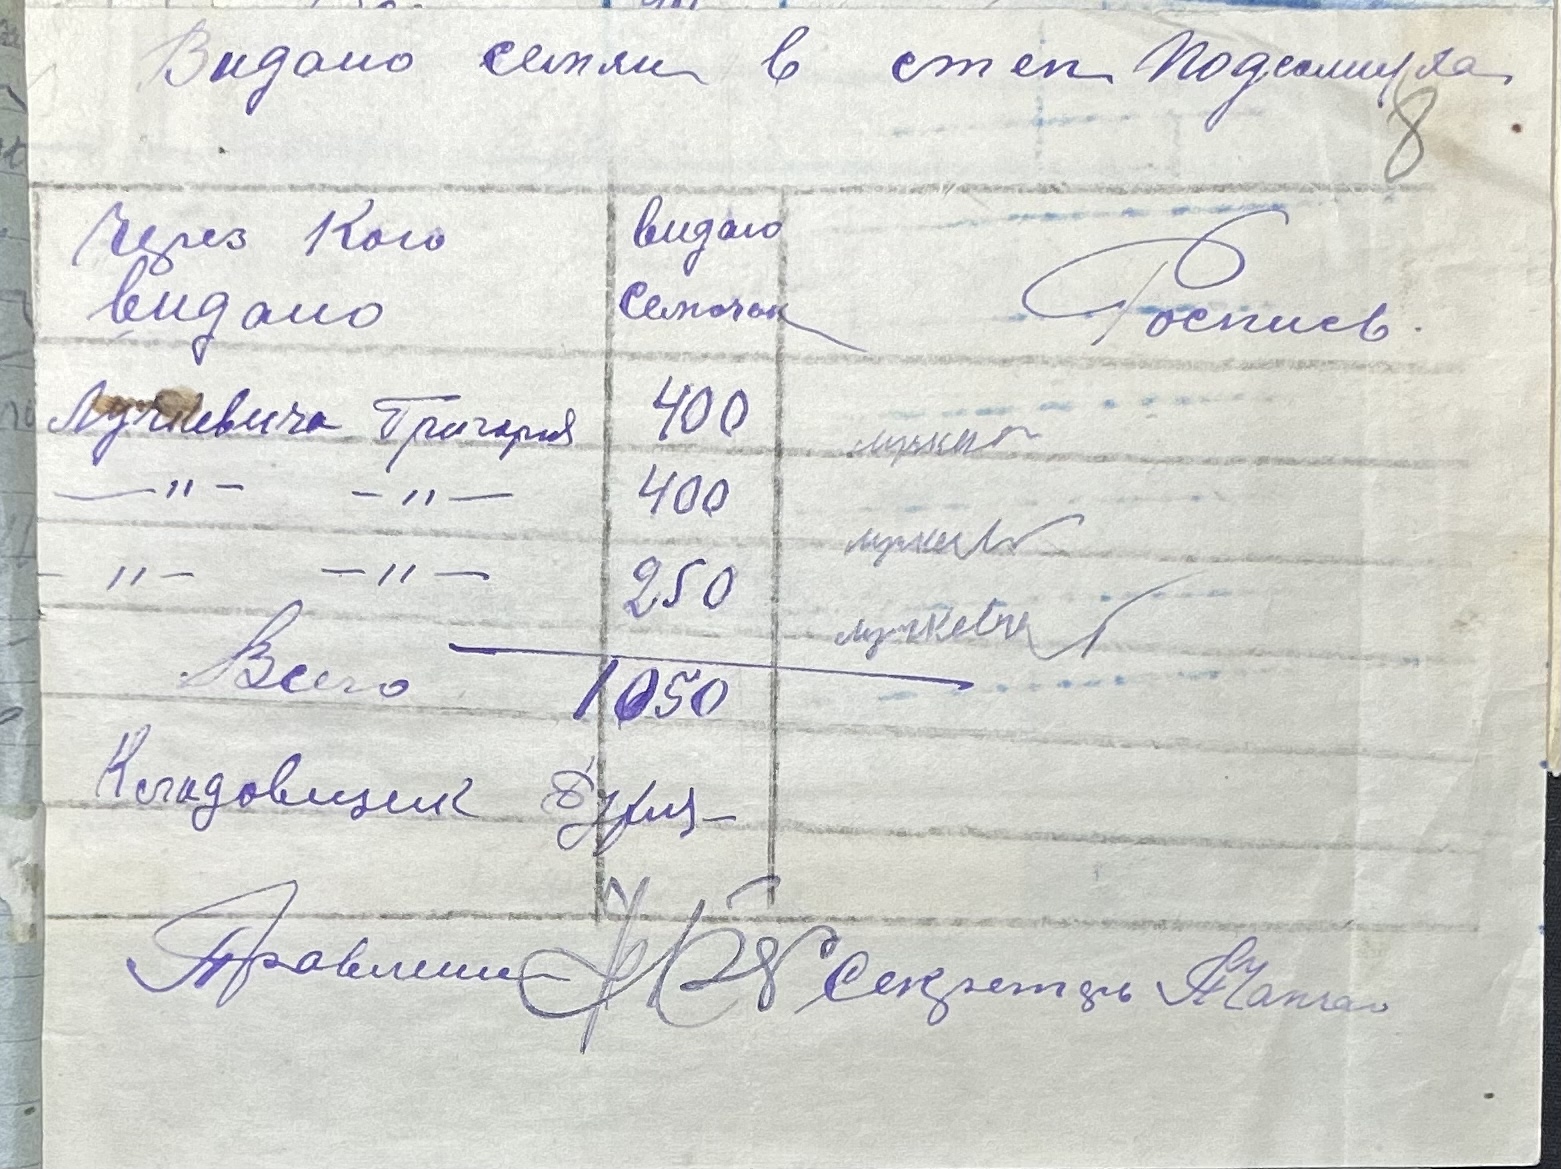 Видано семян в степ Подсолнуха
8
Через Кого видано
видано семочок
Роспись.
Лучкевича Григория 400
—"— —"— 400
—"— —"— 250
Всего 1050
Кладовщик
Правления Секретарь